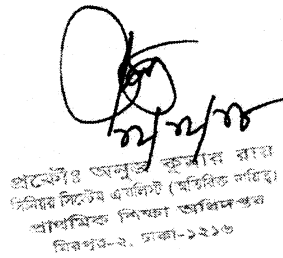 প্রকৌঃ অনুজ কুমার রায়
সিনিয়র সিস্টেম এনালিস্ট (অতিরিক্ত দায়িত্ব)
প্রাথমিক শিক্ষা অধিদপ্তর
মিরপুর-২, ঢাকা-১২১৬